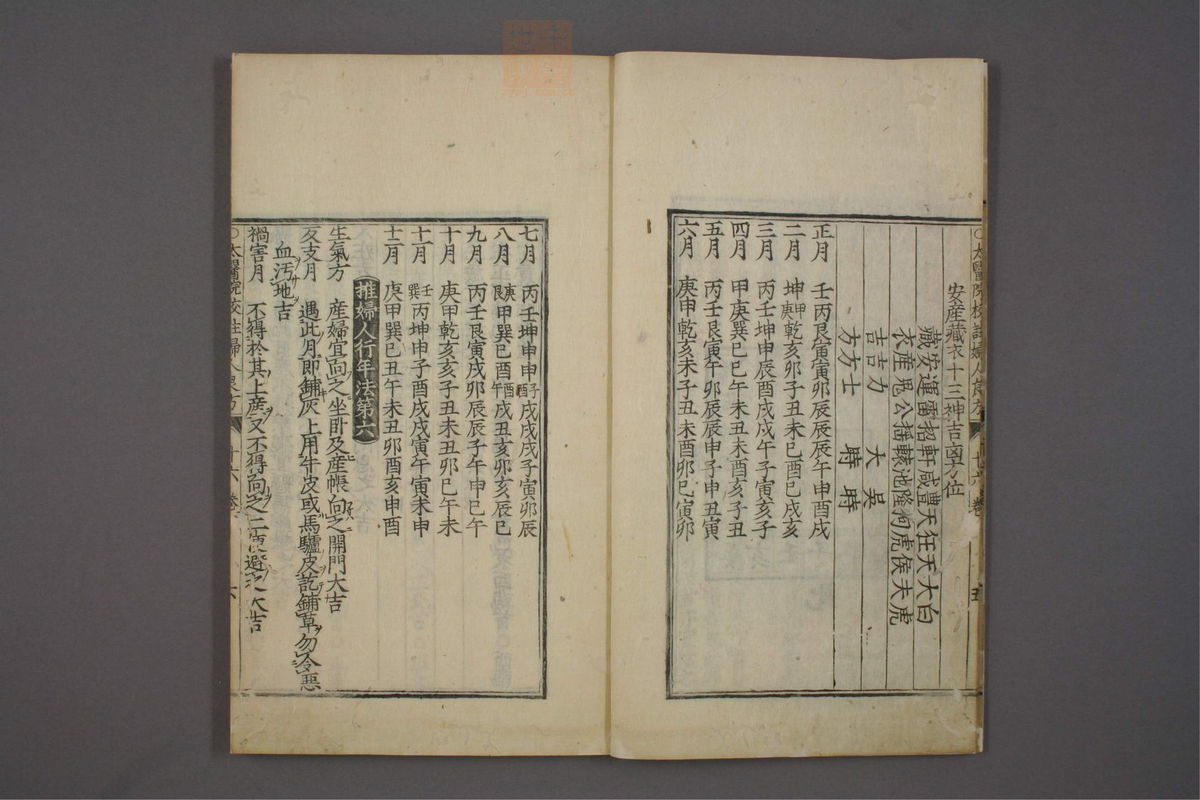 安産藏衣十三神吉凶方位
藏安運雷招軒咸豊天狂天大白
衣産鬼公揺轅池隆狗虎侯夫虎
吉吉力　大吳
方方士　時時
正月　壬丙艮寅寅卯辰辰辰午申酉戌
二月　坤甲庚乾亥卯子丑未巳酉巳戌亥
三月　丙壬坤申辰酉戌戌午子寅亥子
四月　甲庚巽巳巳午未丑未亥子丑
五月　丙壬艮寅午卯辰辰申子丑寅
六月　庚甲乾亥未子丑未酉卯巳寅卯
七月　丙壬坤申申子酉戌戌戌子寅卯辰
八月　庚艮甲巽巳酉酉午戌丑亥卯亥辰巳
九月　丙壬艮寅戌卯辰辰子午申巳午
十月　庚甲乾亥亥子丑未丑卯巳午未
十一月　壬巽丙坤申子酉戌戌寅午寅未申
十二月　庚甲巽巳丑午未丑卯酉亥申酉
推婦人行年法第六
生氣方　産婦宜向之坐卧及産帳向之開門大吉
支月　遇此月即鋪灰上用牛皮或馬驢皮訖鋪草勿令悪
血汚地吉
禍害月　不得於其上産又不得向之大吉